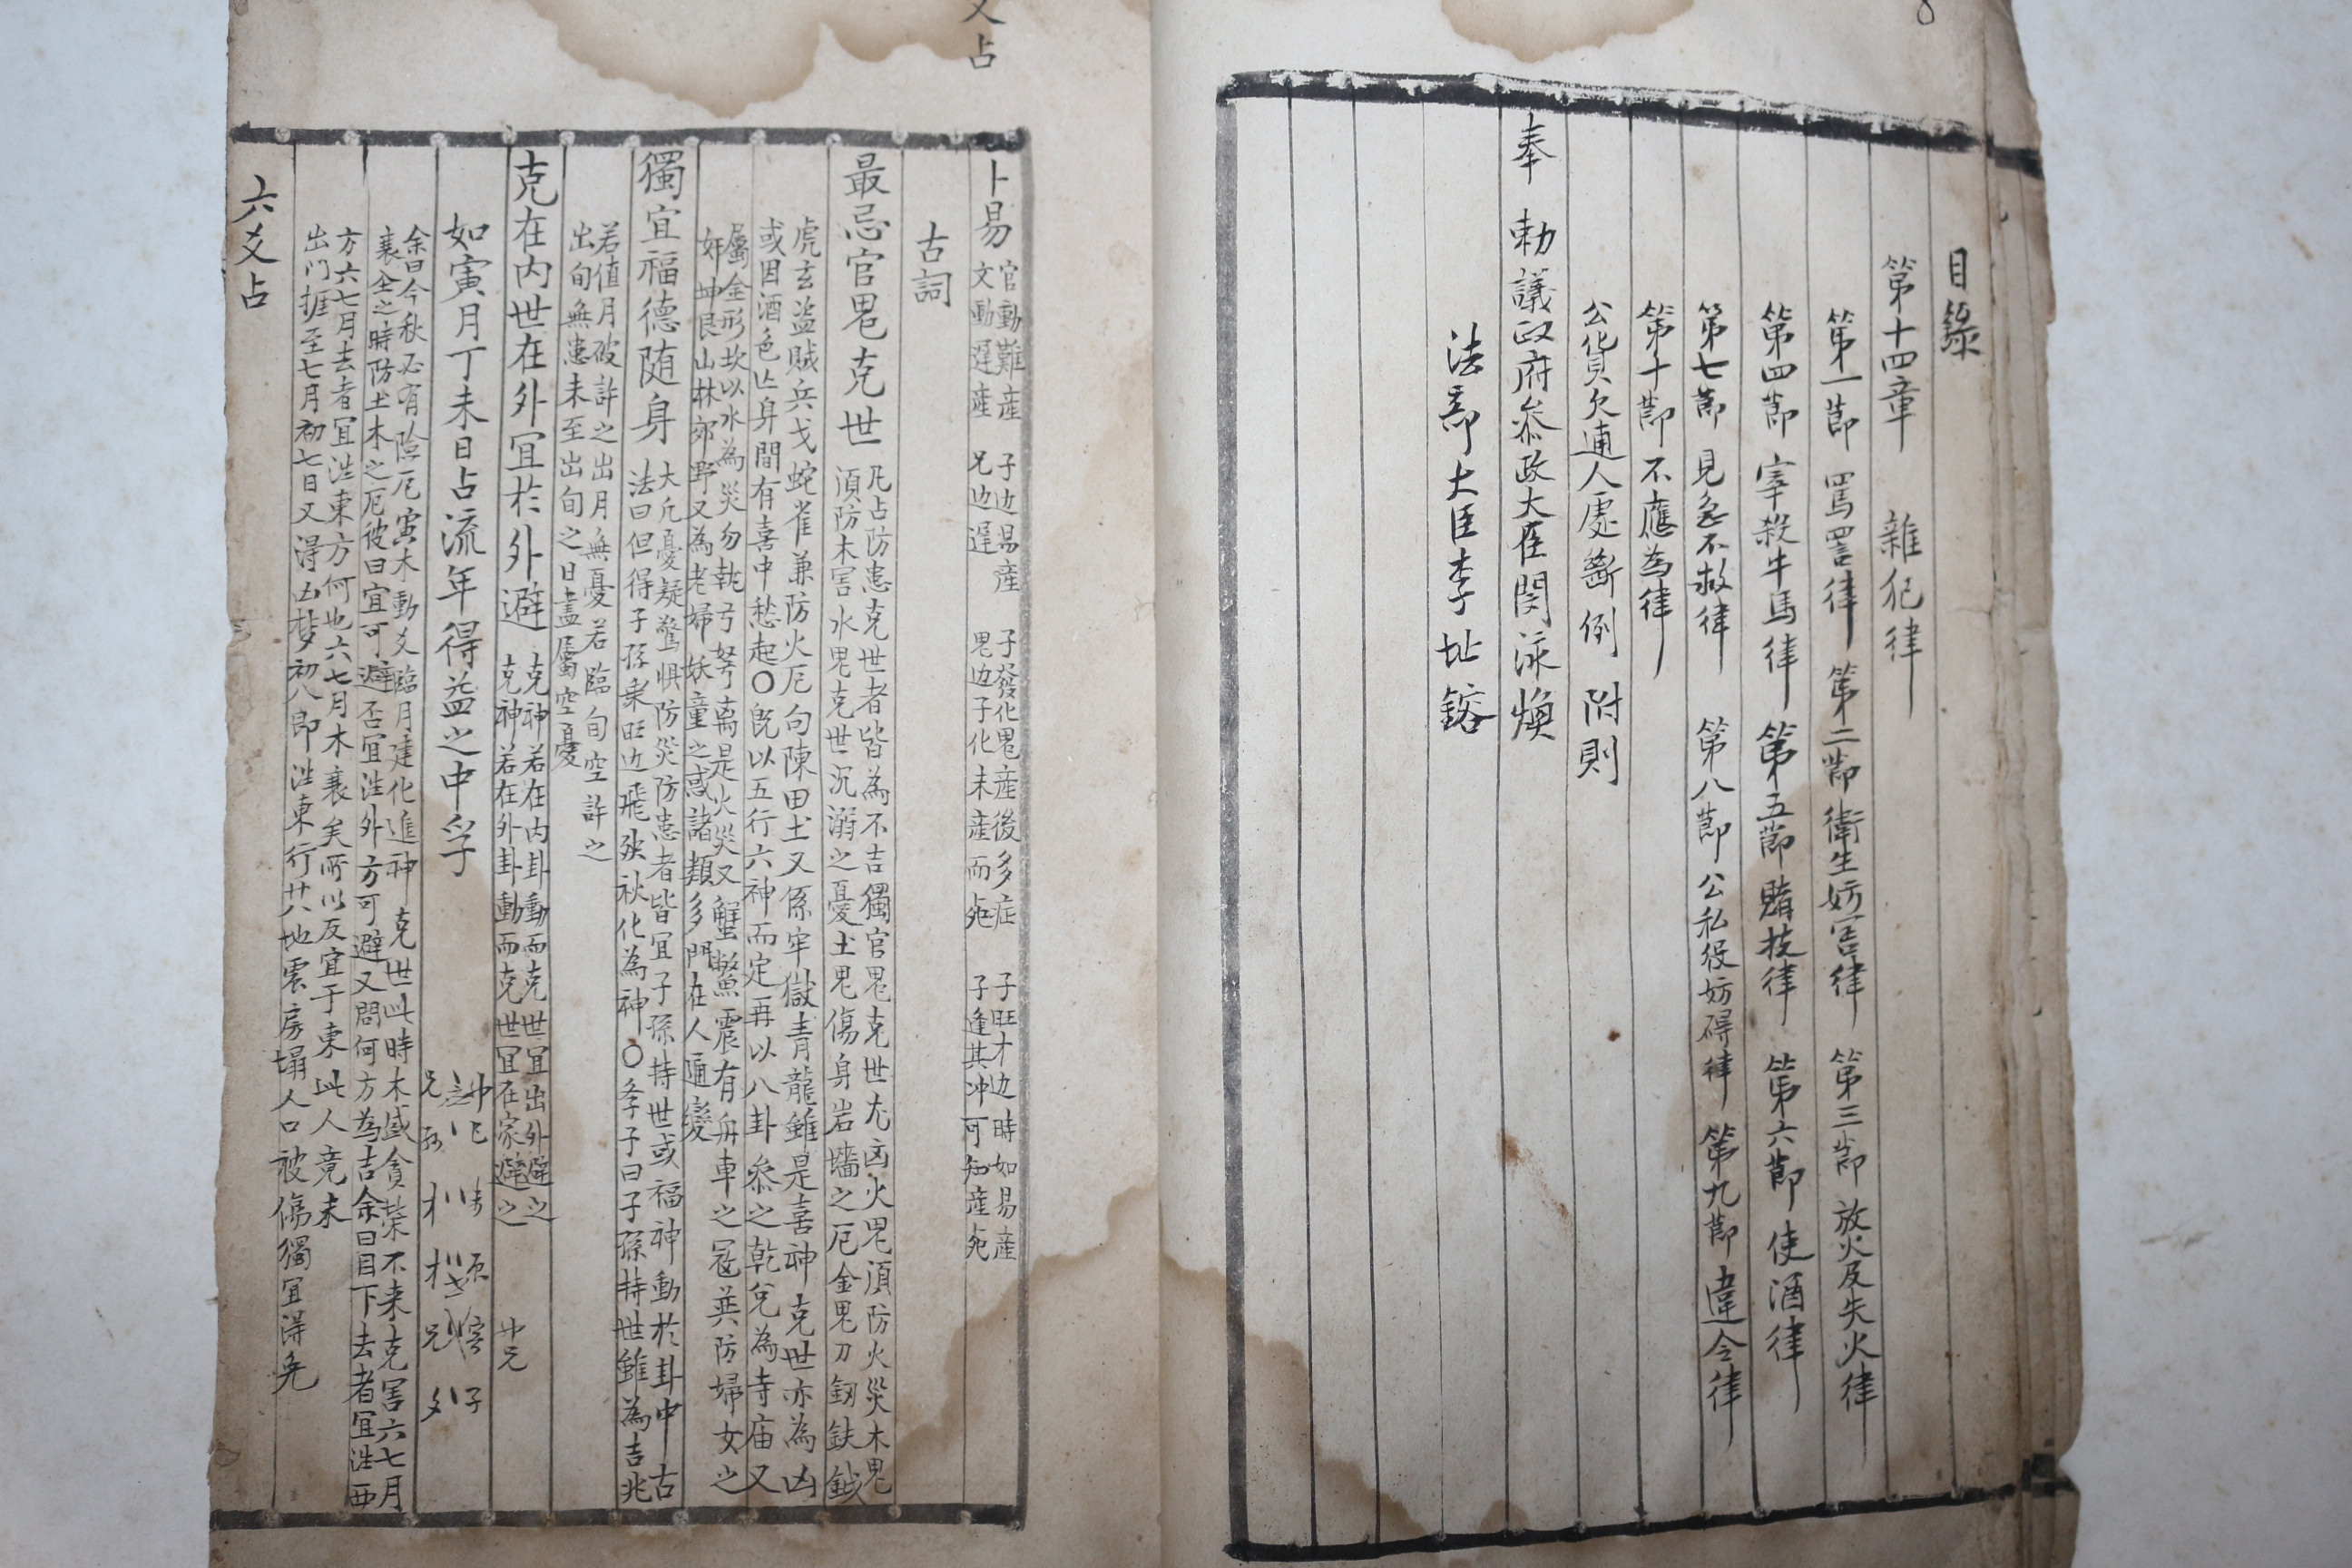 目錄
第十四章 雜犯律
第一節 罵詈律 第二節 衛生妨害律 第三節 放火及失火律
第四節 宰殺牛馬律 第五節 賭技律 第六節 使酒律
第七節 見急不救律 第八節 公私役妨碍律 第九節 違令律
第十節 不應為律
公貨欠逋人處斷例 附則
奉 勅 議政府參政大臣 閔泳煥
法部大臣 李址鎔
爻占
卜易 官動難産 子边易産 子發化鬼産後多症 子旺才边時如易産
文動遲産 兄边遅 鬼边子化未産而死 子逢其冲可知産死
古詞
最忌官鬼克世 凡占防患克世者皆為不吉獨官鬼克世尤凶火鬼湏防火災木鬼
湏防木害水鬼克世沉溺之憂土鬼傷身岩墻之厄金鬼刀釰鈇鉞
虎玄盗賊兵戈蛇雀兼防火厄句陳田土又係牢獄青龍雖是喜神克世亦為凶
或因酒色亡身間有喜中愁起〇既以五行六神而定再以八卦參之乾兌為寺庙又
屬金形坎以水為災勿執弓弩离是火災又蟹鱉震有舟車之冦巽防婦女之
奸坤艮山林郊野又為老婦妖童之惑諸類多門在人通變
獨宜福德随身 大凢憂疑驚惧防災防患者皆宜子孫持世或福神動於卦中古
法曰但得子孫乗旺边飛殃秋化為神〇李子曰子孫持世雖為吉兆
若值月破許之出月無憂若臨旬空許之
出旬無患未至出旬之日盡屬空憂
克在内世在外宜於外避 克神若在内卦動而克世宜出外避之
克神若在外卦動而克世宜在家避之
如寅月丁未日占流年得益之中孚
余曰今秋必有險厄寅木動爻臨月建化進神克世此時木盛貪榮不来克害六七月
衰金之時防土木之厄彼曰宜可避否宜徃外方可避又問何方為吉余曰目下去者宜徃西
方六七月去者宜徃東方何也六七月木衰矣所以反宜于東此人竟未
出门捱至七月初七日又得凶梦初八即徃東行廿八地震房塌人口被傷獨宜得免
六爻占